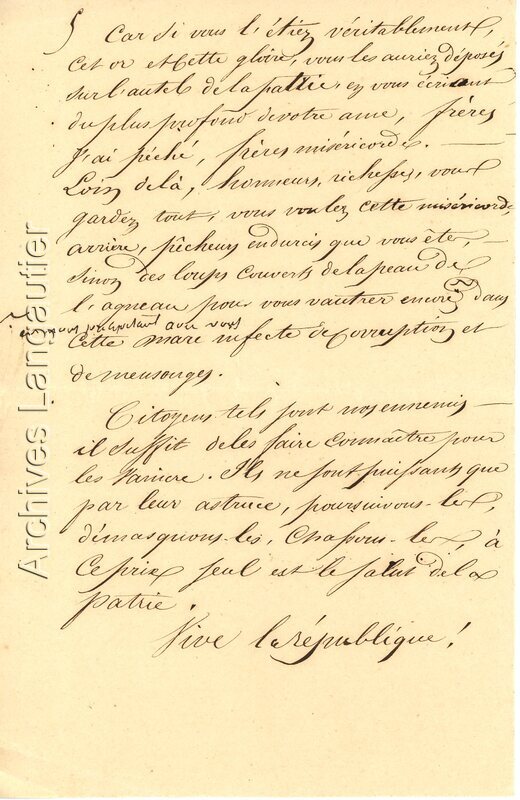 5 Car si vous l'étiez véritablement,
cet or et cette gloire, vous les auriez déposés
sur l'autel de la patrie, en vous écriant
du plus profond de votre ame, frères
J'ai péché, frères miséricorde. —
Loin de là, honneurs, richesses, vous
gardez tout, vous voulez cette miséricorde,
arrière, pêcheurs endurcis que vous êtes, —
sinon des loups couverts de la peau de
l'agneau pour vous vautrer encore dans
en nous avec vous
cette mare infecte de corruption et
de mensonges.
Citoyens tels sont nos ennemis —
il suffit de les faire connaître pour
les vaincre. Ils ne sont puissants que
par leur astuce, poursuivons-les,
démasquons-les, chassons-les, à
ce prix seul est le salut de la
patrie.
Vive la république!
Archives Langautier